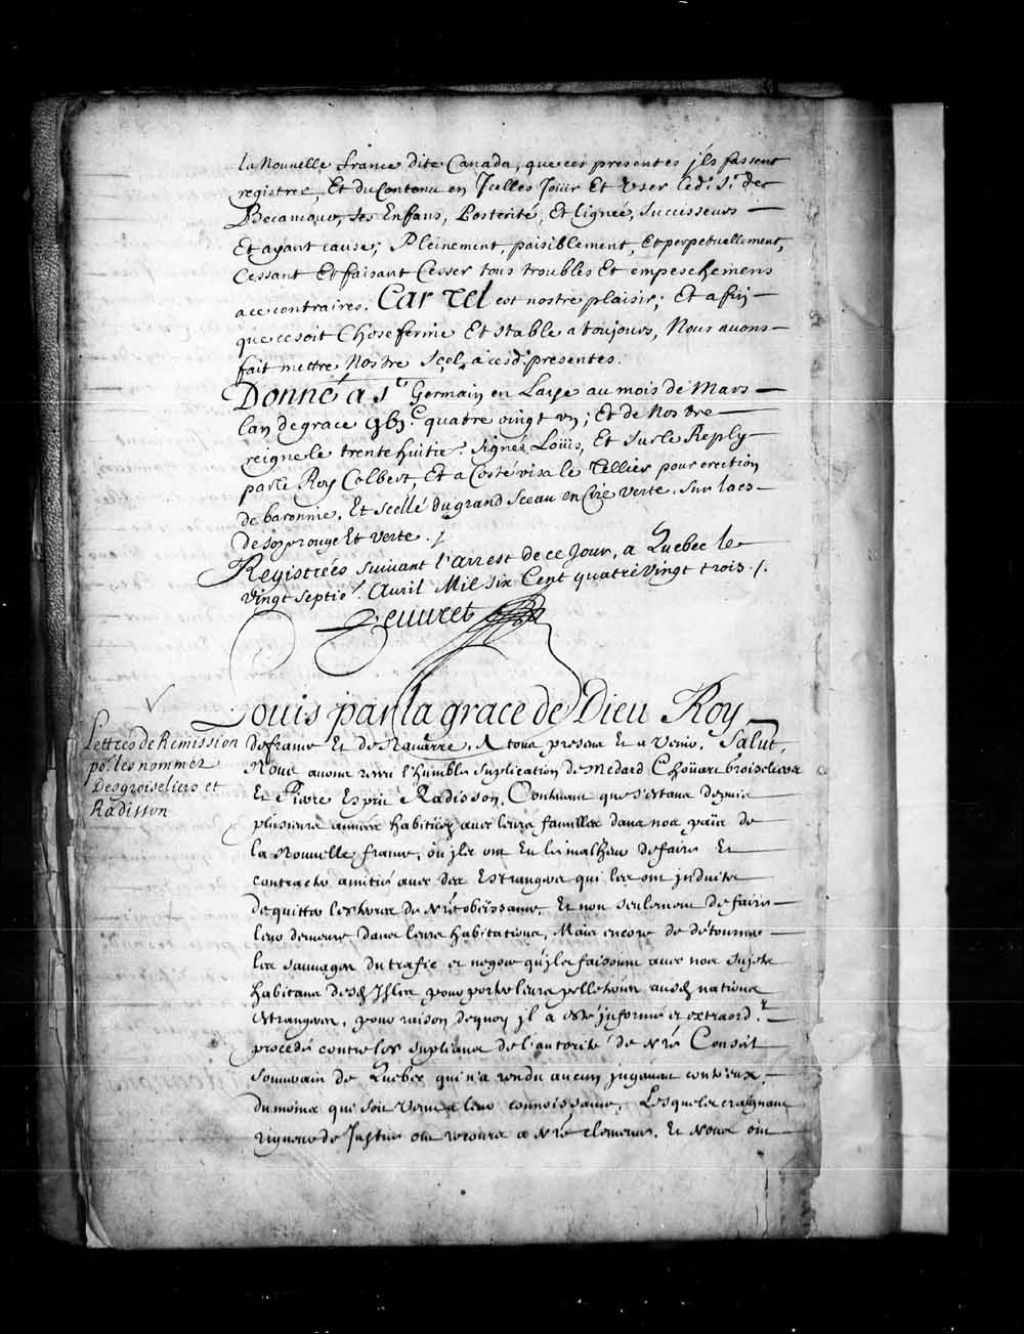 la Nouvelle france dite Canada, que ces presentes jls fassent
registrer, Et du Contenu en Jcelles Joüir Et User led.t S.r de
Becancour, ses Enfans, Posterité, Et lignée, Successeurs
Et ayant cause; Pleinement, paisiblement, Et perpetuellement,
Cessant Et faisant Cesser tous troubles Et empeschemens
a ce contraires. Car Tel est nostre plaisir; Et afin
que ce soit Chose ferme Et stable a toujours, Nous avons
fait mettre Nostre Scel, a cesd. presentes.
Donné a S.t Germain en Laye au mois de Mars
lan de grace gbj.c quatre vingt un; Et de Nostre
reigne le trente huitie. Signé Loüis, Et Sur le Reply
par le Roy Colbert, Et a Costé visa le Tellier pour erection
de baronnie, Et scellé du grand Sceau en Cire verte. Sur lacs
de soye rouge Et verte./.
Registrées suivant l'arrest de ce Jour, a Quebec le
vingt septie. Avril Mil six Cent quatre vingt trois./.
Peuvret
Louis par la grace de Dieu Roy
Lettres de Remission
po.r les nommez
Desgroiseliers et
Radisson
de france Et de Navarre, A tous presens Et a Venir, Salut,
Nous avons receu l'humble Suplication de Medard Choüart Groiseliers
Et Pierre Esprit Radisson, Contenant que s'estans depuis
plusieurs années habituéz avec leurs familles dans nos païs de
la Nouvelle france, où jls ont Eu le malheur de faire Et
contracter amitié avec des Estrangers qui les ont jnduits
de quitter les terres de N.re obeissance, Et non seulement de faire
leur demeure dans leurs habitations, Mais encore de détourner
les sauvages du trafic et negoce qu'jls faisoient avec nos Sujets
habitans desd. Jsles pour porter leurs pelleteries ausd. nations
estrangeres, pour raison dequoy jl a esté jnformé et extraord.t
procedé contre les supliants de l'autorité de N.re Conseil
Souverain de Quebec qui n'a rendu aucun jugement contr'eux,
du moins qui soit Venu a leur connoissance, Lesquels craignant
rigueur de Justice ont recours a N.re clemence, Et Nous ont